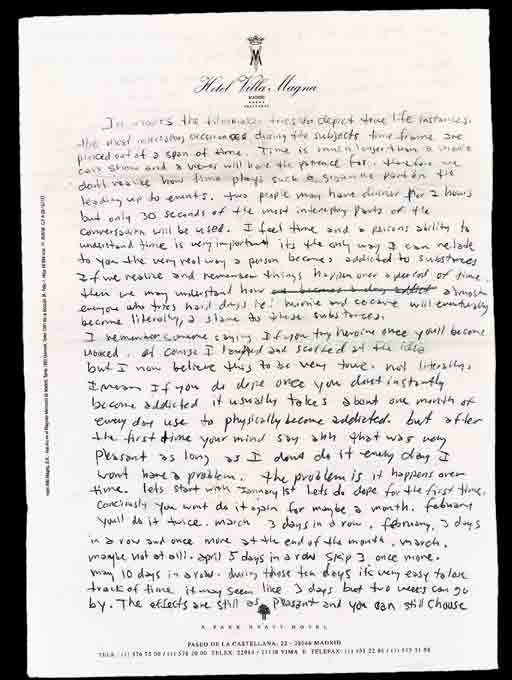 Hotel Villa Magna
MADRID
In movies the filmmaker tries to depict true life instances.
the most interesting occurances during the subjects time frame are
pieced out of a span of time. Time is much longer than a movie
can show and a viewer will have the patience for. therefore we
dont realize how time plays such a part on the
leading up to events. two people may have dinner for 2 hours
but only 30 seconds of the most interesting parts of the
conversation will be used. I feel time and a persons ability to
understand time is very important its the only way I can relate
to you the very real way a person becomes addicted to substances
If we realize and remember things happen over a period of time.
then we may understand how almost
everyone who tries hard drugs ie: heroine and cocaine will eventually
become literally, a slave to these substances.
I remember someone saying If you try heroine once youll become
hooked. of course I laughed and scoffed at the idea
but I now believe this to be very true. not literally.
I mean If you do dope once you dont instantly
become addicted it usually takes about one month of
every day use to physically become addicted. but after
the first time your mind say ahh that was very
pleasant as long as I dont do it every day I
wont have a problem. the problem is it happens over
time. lets start with January 1st Lets do dope for the first time.
conciously you wont do it again for maybe a month. febuary
youll do it twice. march 3 days in a row. february, 3 days
in a row and once more at the end of the month. march.
maybe not at all. april 5 days in a row skip 3 once more.
may 10 days in a row. during those ten days its very easy to lose
track of time it may seem like 3 days but two weeks can go
by. The effects are still as pleasant and you can still choose
A PARK HYATT HOTEL
PASEO DE LA CASTELLANA, 22 - 28046 MADRID